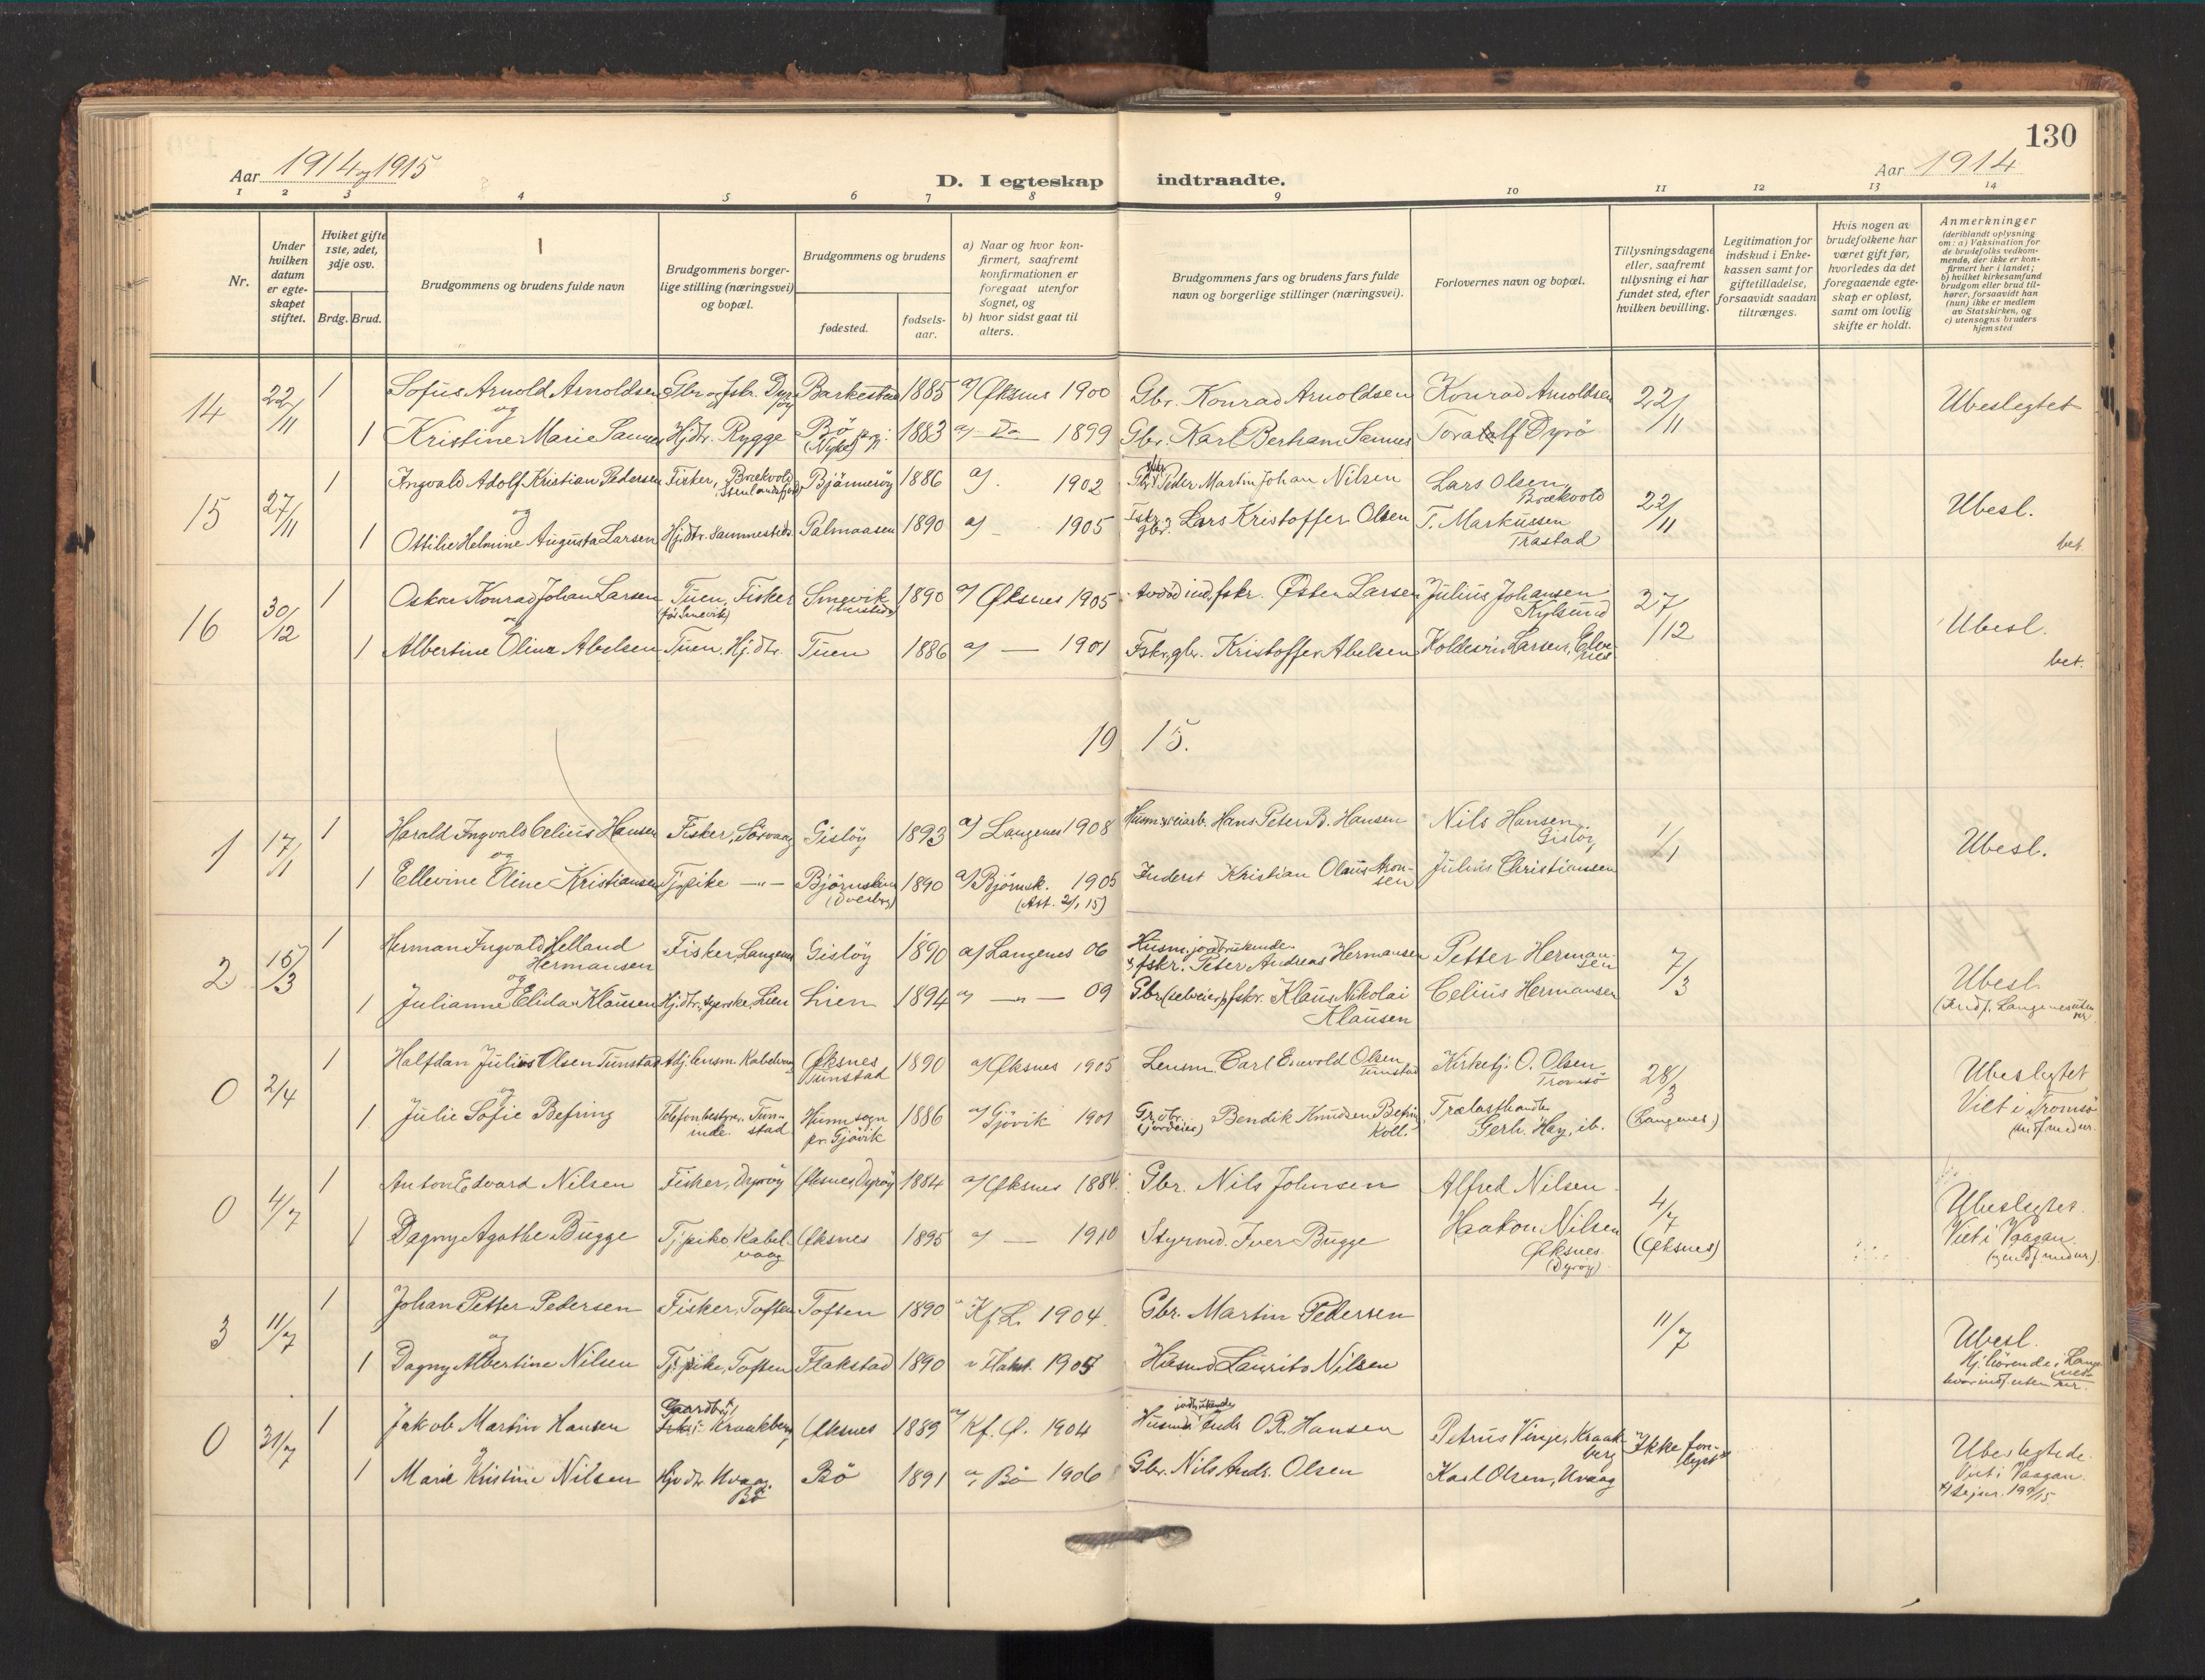 130
Aar 1914 og 1915
D. I egteskap indtraadte.
Aar 1914
1 2 3 4 5 6 7 8 9 10 11 12 13 14
Nr.
Under hvilken datum er egteskapet stiftet.
Hviket gifte 1ste, 2det, 3dje osv.
Brdg. Brud.
Brudgommens og brudens fulde navn
Brudgommens borgerlige stilling (næringsvei) og bopæl.
Brudgommens og brudens
fødested.
fødselsaar.
a) Naar og hvor konfirmert, saafremt konfirmationen er foregaat utenfor sognet, og
b) hvor sidst gaat til alters.
Brudgommens fars og brudens fars fulde navn og borgerlige stillinger (næringsvei).
Forlovernes navn og bopæl.
Tillysningsdagene eller, saafremt tillysning ei har fundet sted, efter hvilken bevilling.
Legitimation for indskud i Enkekassen samt for giftetilladelse, forsaavidt saadan tiltrænges.
Hvis nogen av brudefolkene har været gift før, hvorledes da det foregaaende egteskap er opløst, samt om lovlig skifte er holdt.
Anmerkninger
(deriblandt oplysning om: a) Vaksination for de brudefolks vedkommende, der ikke er konfirmert her i landet; b) hvilket kirkesamfund brudgom eller brud tilhører, forsaavidt han (hun) ikke er medlem av Statskirken, og c) utensogns bruders hjemsted
14 22/11 1 Sofus Arnold Arnoldsen Gbr og fskr. Dyrøy Barkestad 1885 a) Øksnes 1900 Gbr. Konrad Arnoldsen Konrad Arnoldsen 22/11 Ubeslegtet
og
1 Kristine Marie Hj.dtr. Rygge Bö prgj. (Nyke) 1883 a) Do 1899 Gbr. Karl Bertram Toralf Dyrö
15 27/11 1 Ingvald Adolf Kristian Pedersen Fisker, Brækvold Bjönnerøy 1886 a) 1902 Peder Martin Johan Nilsen Lars Olsen, Brækvold 22/11 Ubesl.
og
1 Ottilie Helmine Augusta Larsen Hj.dtr. Sammesteds Palmaasen 1890 a) 1905 Fskr. gbr. Lars Kristoffer Olsen T. Markussen Trastad bet.
16 30/12 1 Oskar Konrad Johan Larsen Tuen, Fisker (før Smevik) Smevik 1890 a) Øksnes 1905 Avdöd ind. fskr. Østen Larsen Julius Johansen 27/12 Ubesl.
og
1 Albertine Olina Abelsen Tuen, Hj.dtr. Tuen 1886 a) — 1901 Fskr, gbr. Kristoffer Abelsen Larsen, bet.
19 15.
1 17/1 1 Harald Ingvald Celius Hansen Fisker, Sörvaag Gisløy 1893 a) Langenes 1908 Husm, veiarb. Hans Peter B. Hansen Nils Hansen, Gisløy 1/1 Ubesl.
og
1 Ellevine Eline Kristiansen Tj.pike —"— Björnskinn 1890 a) Björnsk. 1905 (Att. 2/1 15) Inderst Kristian Olaus Julius Christiansen
2 15/3 1 Herman Ingvald Helland Hermansen Fisker, Langenes Gisløy 1890 a) Langenes 06 Husm. jordbrukende & fskr. Peter Andreas Hermansen Petter Hermansen 7/3 Ubesl.
og
1 Julianne Elida Klausen Hj.dtr. Lien Lien 1894 a) —"— 09 Gbr (selveier) fskr. Klaus Nikolai Klausen Celius Hermansen (Indf. Langenes uten nr.
0 2/4 1 Halfdan Julius Olsen Tunstad Adj. lensm. Kabelvaag Øksnes Tunstad 1890 a) Øksnes 1905 Lensm. Carl Enevold Olsen Tunstad Kirketj. O. Olsen, Tromsö 28/3 (Langenes) Ubeslegtet
og
1 Julie Sofie Befring Telefonbestyrerinde. Tunstad Hunn sogn pr. Gjövik 1886 a) Gjövik 1901 Grdbr. (jordeier) Bendik Knudsen Befring Koll. Trælasthandler Gerh. Hay, ib. Viet i Tromsö indf. med nr.
0 4/7 1 Anton Edvard Nilsen Fisker, Dyrøy Øksnes, Dyrøy 1884 a) Øksnes 1884. Gbr. Nils Johnsen Alfred Nilsen 4/7 (Øksnes) Ubeslegtet.
1 Dagny Agathe Bugge Tj.pike Kabelvaag Øksnes 1895 a) — 1910 Styrmd. Iver Bugge Haakon Nilsen Øksnes. (Dyrøy) Viet i Vaagan.
3 11/7 1 Johan Petter Pedersen Fisker, Toften Toften 1890 Kf. L. 1904. Gbr. Martin Pedersen 11/7 Ubesl.
og
1 Dagny Albertine Nilsen Tj.pike, Toften Flakstad 1890 Flakst. 1905 Husmd Laurits Nilsen Hj.hörende i Langenes hvor indf. uten nr.
0 31/7 1 Jakob Martin Hansen Gaardbr. Kraakberg Øksnes 1889 a) Kf. Ø. 1904 jordbrukende Husmd O. R. Hansen Petrus Vinje, Kraakberg Ikke forlyst Ubeslegtede.
og
1 Marie Kristine Nilsen Hjvdtr. Uvaag, Bö Bö 1891 a) Bö 1906 Gbr. Nils Andr. Olsen Karl Olsen, Uvaag Viet i Vaagan.